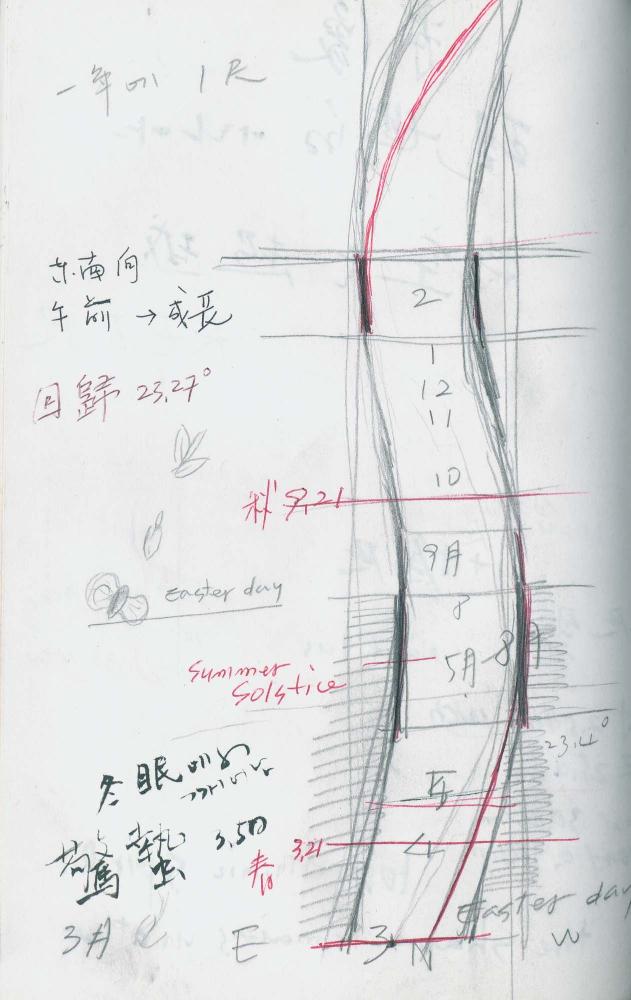 一年에 1尺
东南向
午前 → 成長
2
1
12
11
10
回歸 23.27°
秋 9.21
9月
8
Easter day
5月-8月
Summer
Solstice
23.4°
冬眠
驚蟄 3.5日
春 3.21
4
Easter day
3月
E
3
W